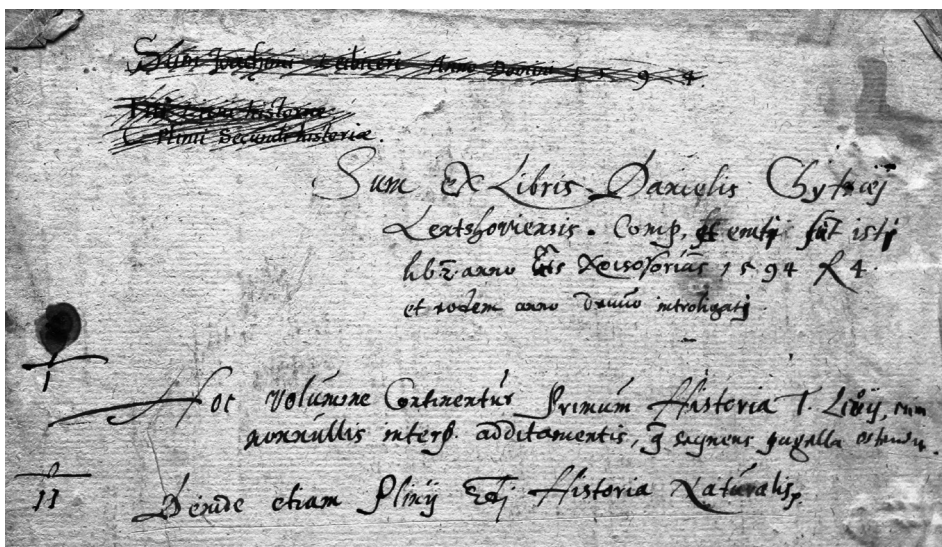 Sum Joachimi Libiceri Anno Domini 1594.
Titi Livii historiae
C Plinii Secundi historiæ.
Sum ex Libris Danielis Chytræj
Leutshoviensis. Comp, et emtj sūt istj
anno 1594
et eodem anno denuo introligatj.
I
Hoc volumine Continentur Primum Historia T. Livij, cum
nonnullis interp. additamentis, sequens pagella
II
Deinde etiam Plinij Historia Naturalis.